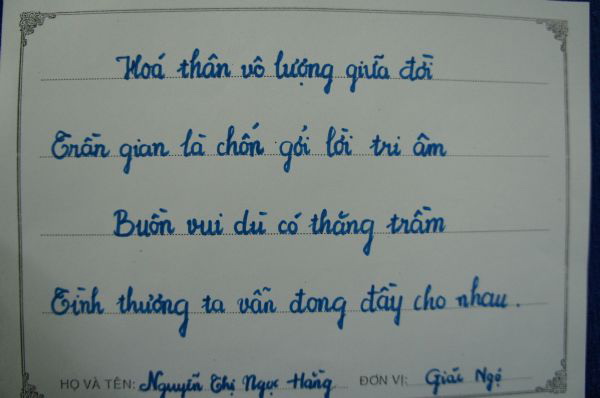 Hoá thân vô lượng giữa đời
Trần gian là chốn gởi lời tri âm
Buồn vui dù có thăng trầm
Tình thương ta vẫn đong đầy cho nhau.
HỌ VÀ TÊN: Nguyễn Thị Ngọc Hằng ĐƠN VỊ: Giác Ngộ